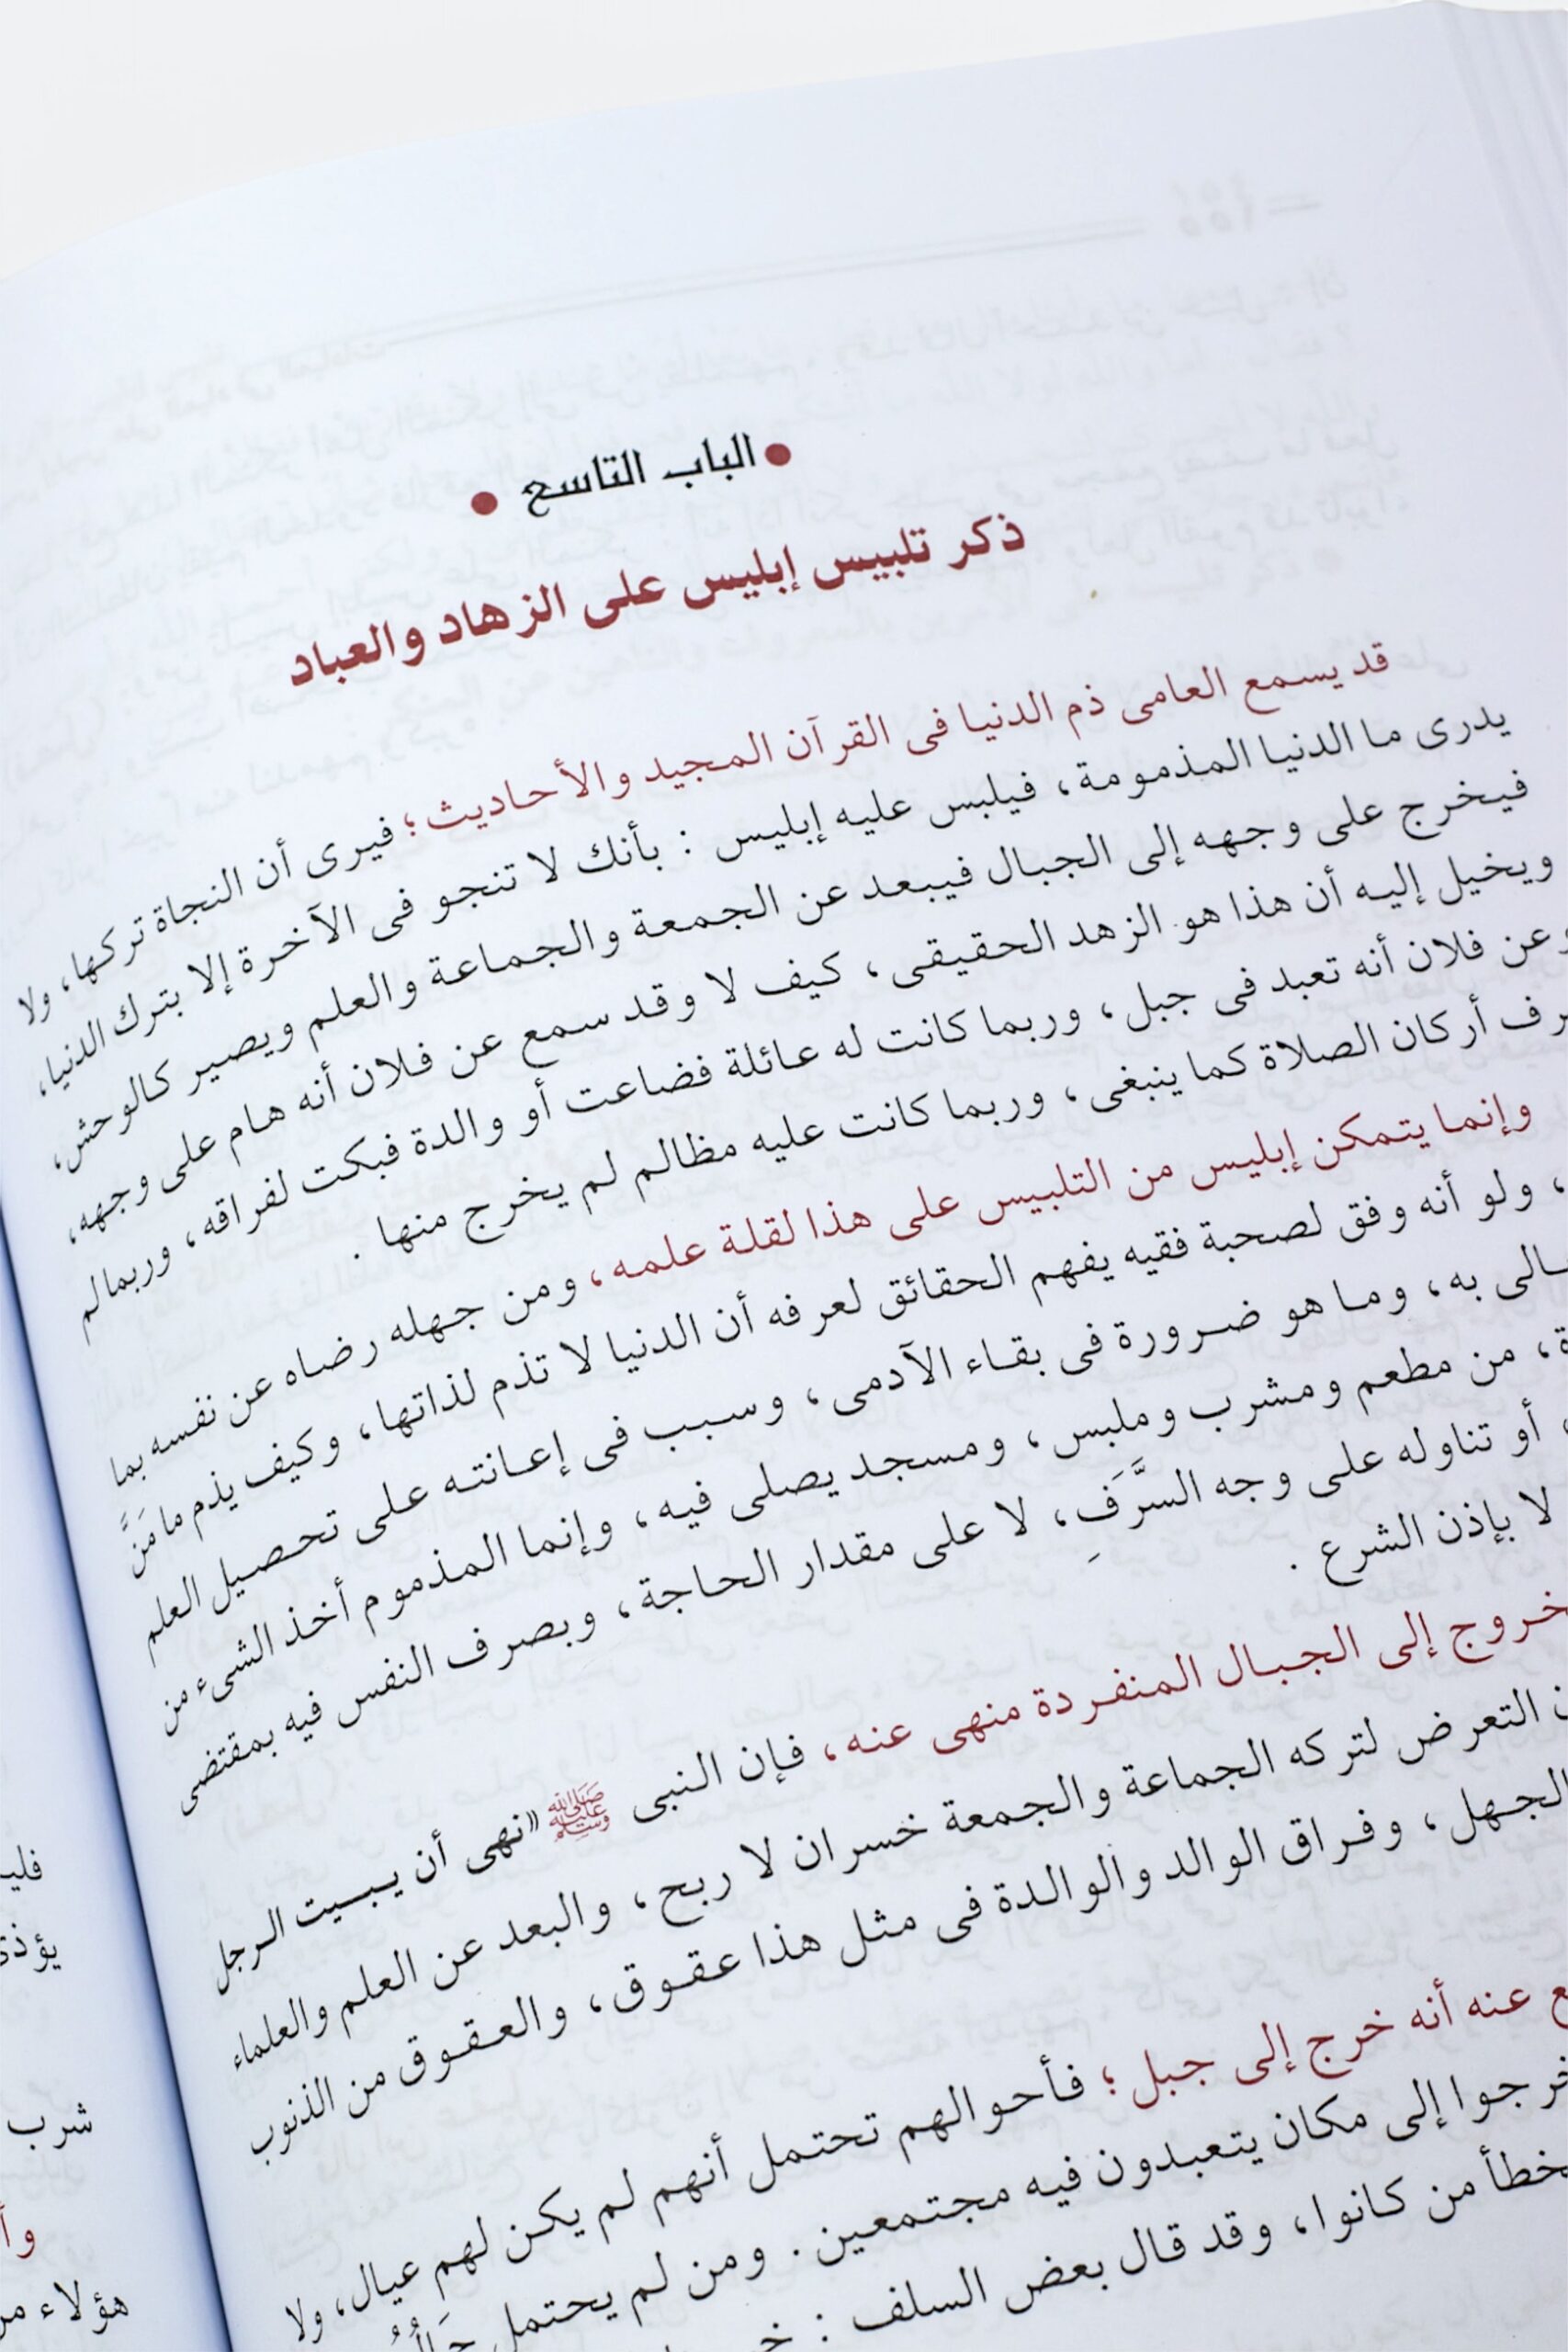 الباب التاسع
ذكر تلبيس إبليس على الزهاد والعباد
قد يسمع العامى ذم الدنيا فى القرآن المجيد والأحاديث؛ فيرى أن النجاة تركها، ولا
يدرى ما الدنيا المذمومة، فيلبس عليه إبليس : بأنك لا تنجو فى الآخرة إلا بترك الدنيا،
فيخرج على وجهه إلى الجبال فيبعد عن الجمعة والجماعة والعلم ويصير كالوحش،
ويخيل إليه أن هذا هو الزهد الحقيقى، كيف لا وقد سمع عن فلان أنه هام على وجهه،
وعن فلان أنه تعبد فى جبل، وربما كانت له عائلة فضاعت أو والدة فبكت لفراقه، وربما لم
رف أركان الصلاة كما ينبغى، وربما كانت عليه مظالم لم يخرج منها .
وإنما يتمكن إبليس من التلبيس على هذا لقلة علمه، ومن جهله رضاه عن نفسه بما
، ولو أنه وفق لصحبة فقيه يفهم الحقائق لعرفه أن الدنيا لا تذم لذاتها، وكيف يذم ما مَنَّ
الى به، وما هو ضرورة فى بقاء الآدمى، وسبب فى إعانته على تحصيل العلم
ة، من مطعم ومشرب وملبس، ومسجد يصلى فيه، وإنما المذموم أخذ الشىء من
أو تناوله على وجه السَّرَفِ، لا على مقدار الحاجة، وبصرف النفس فيه بمقتضى
لا بإذن الشرع .
خروج إلى الجبال المنفردة منهى عنه، فإن النبى ﷺ «نهى أن يبيت الرجل
ن التعرض لتركه الجماعة والجمعة خسران لا ربح، والبعد عن العلم والعلماء
الجهل، وفراق الوالد والوالدة فى مثل هذا عقوق، والعقوق من الذنوب
ع عنه أنه خرج إلى جبل؛ فأحوالهم تحتمل أنهم لم يكن لهم عيال، ولا
خرجوا إلى مكان يتعبدون فيه مجتمعين. ومن لم يحتمل
خطأ من كانوا، وقد قال بعض السلف :
فلي
يؤذ
شرب
وأ
هؤلاء مر